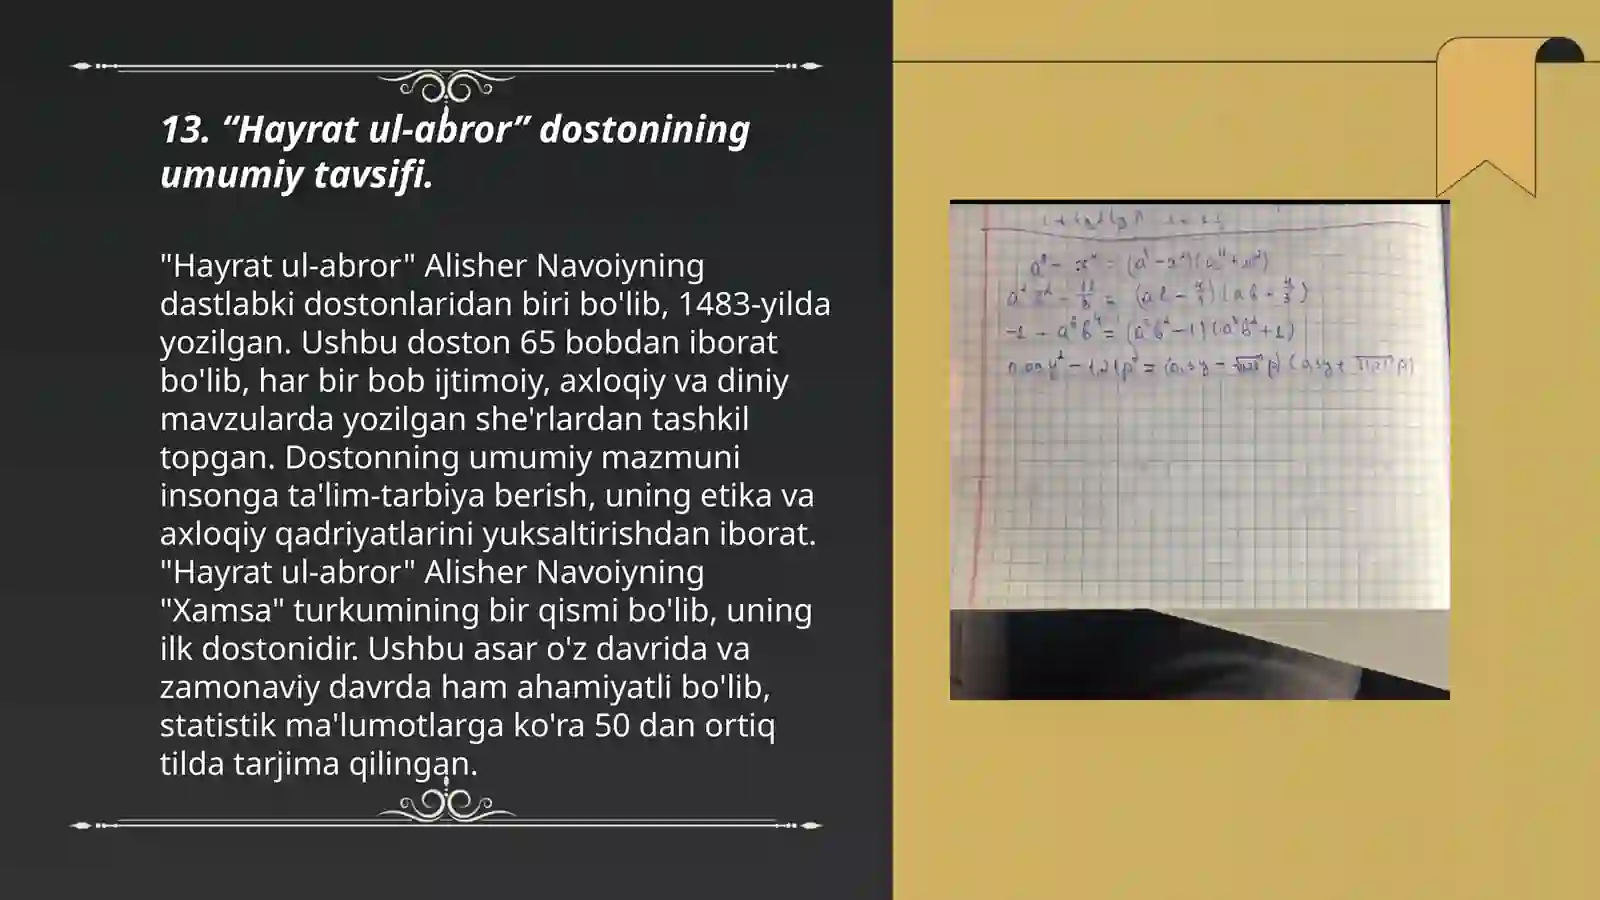 13. “Hayrat ul-abror” dostonining
umumiy tavsifi.
"Hayrat ul-abror" Alisher Navoiyning
dastlabki dostonlaridan biri bo'lib, 1483-yilda
yozilgan. Ushbu doston 65 bobdan iborat
bo'lib, har bir bob ijtimoiy, axloqiy va diniy
mavzularda yozilgan she'rlardan tashkil
topgan. Dostonning umumiy mazmuni
insonga ta'lim-tarbiya berish, uning etika va
axloqiy qadriyatlarini yuksaltirishdan iborat.
"Hayrat ul-abror" Alisher Navoiyning
"Xamsa" turkumining bir qismi bo'lib, uning
ilk dostonidir. Ushbu asar o'z davrida va
zamonaviy davrda ham ahamiyatli bo'lib,
statistik ma'lumotlarga ko'ra 50 dan ortiq
tilda tarjima qilingan.